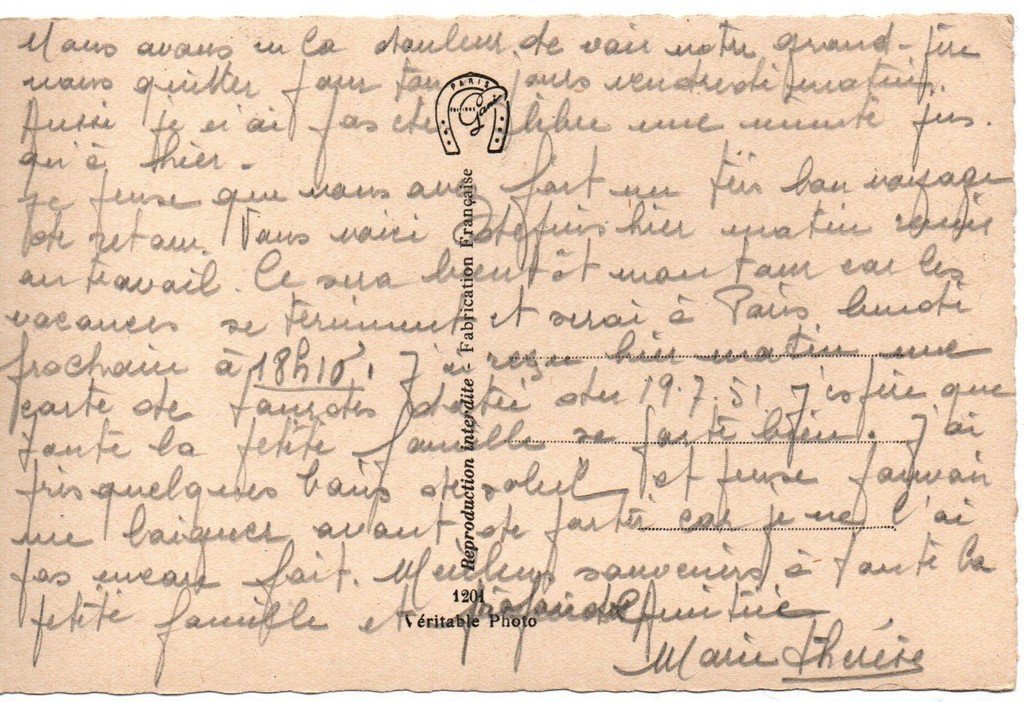 Nous avons eu la douleur de voir notre grand-père
nous quitter pour toujours vendredi matin.
Aussi je n'ai pas été libre une minute jus-
qu'à hier -
Je pense que vous avez fait un très bon voyage
de retour. Nous voici depuis hier matin remis
au travail. Ce sera bientôt mon tour car les
vacances se terminent et serai à Paris lundi
prochain à 18h10. J'ai reçu hier matin une
carte de datée du 19.7.51. J'espère que
toute la petite famille se porte bien. J'ai
pris quelques bains de soleil et pense pouvoir
me baigner avant de partir car je ne l'ai
pas encore fait. Meilleurs souvenirs à toute la
petite famille et profonde Amitié
Marie Thérèse
PARIS
EDITIONS
Gani
Reproduction interdite - Fabrication Française
1201
Véritable Photo